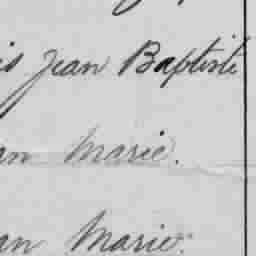 is Jean Baptiste
an Marie.
an Marie.